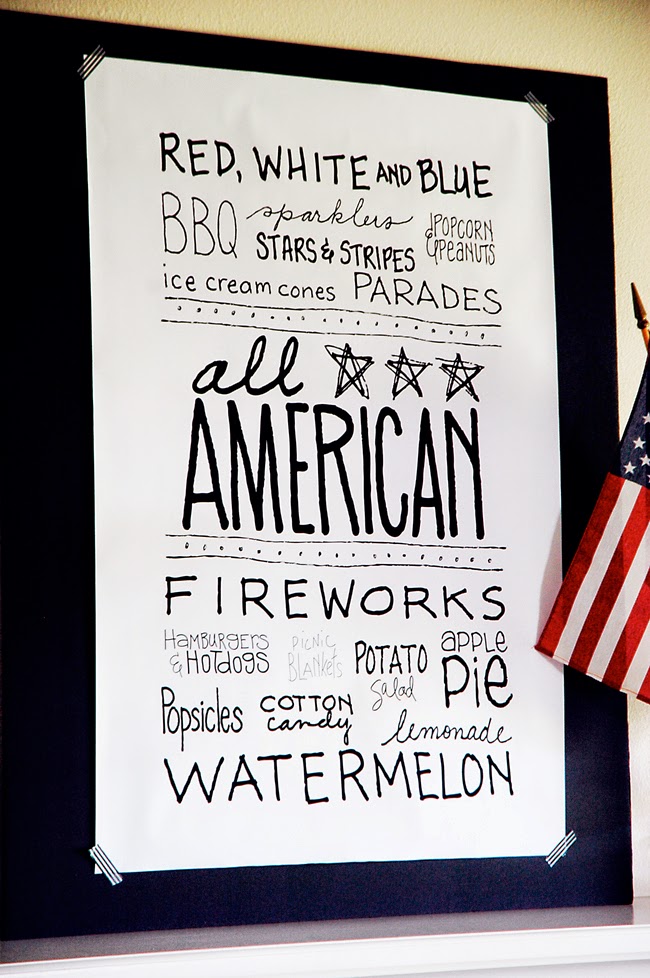 RED, WHITE AND BLUE
BBQ
sparklers
STARS & STRIPES
POPCORN
& PEANUTS
ice cream cones PARADES
all
AMERICAN
FIREWORKS
HAMBURGERS
& HOTDOGS
PICNIC
BLANKETS
POTATO
salad
apple
pie
Popsicles
COTTON
candy
lemonade
WATERMELON